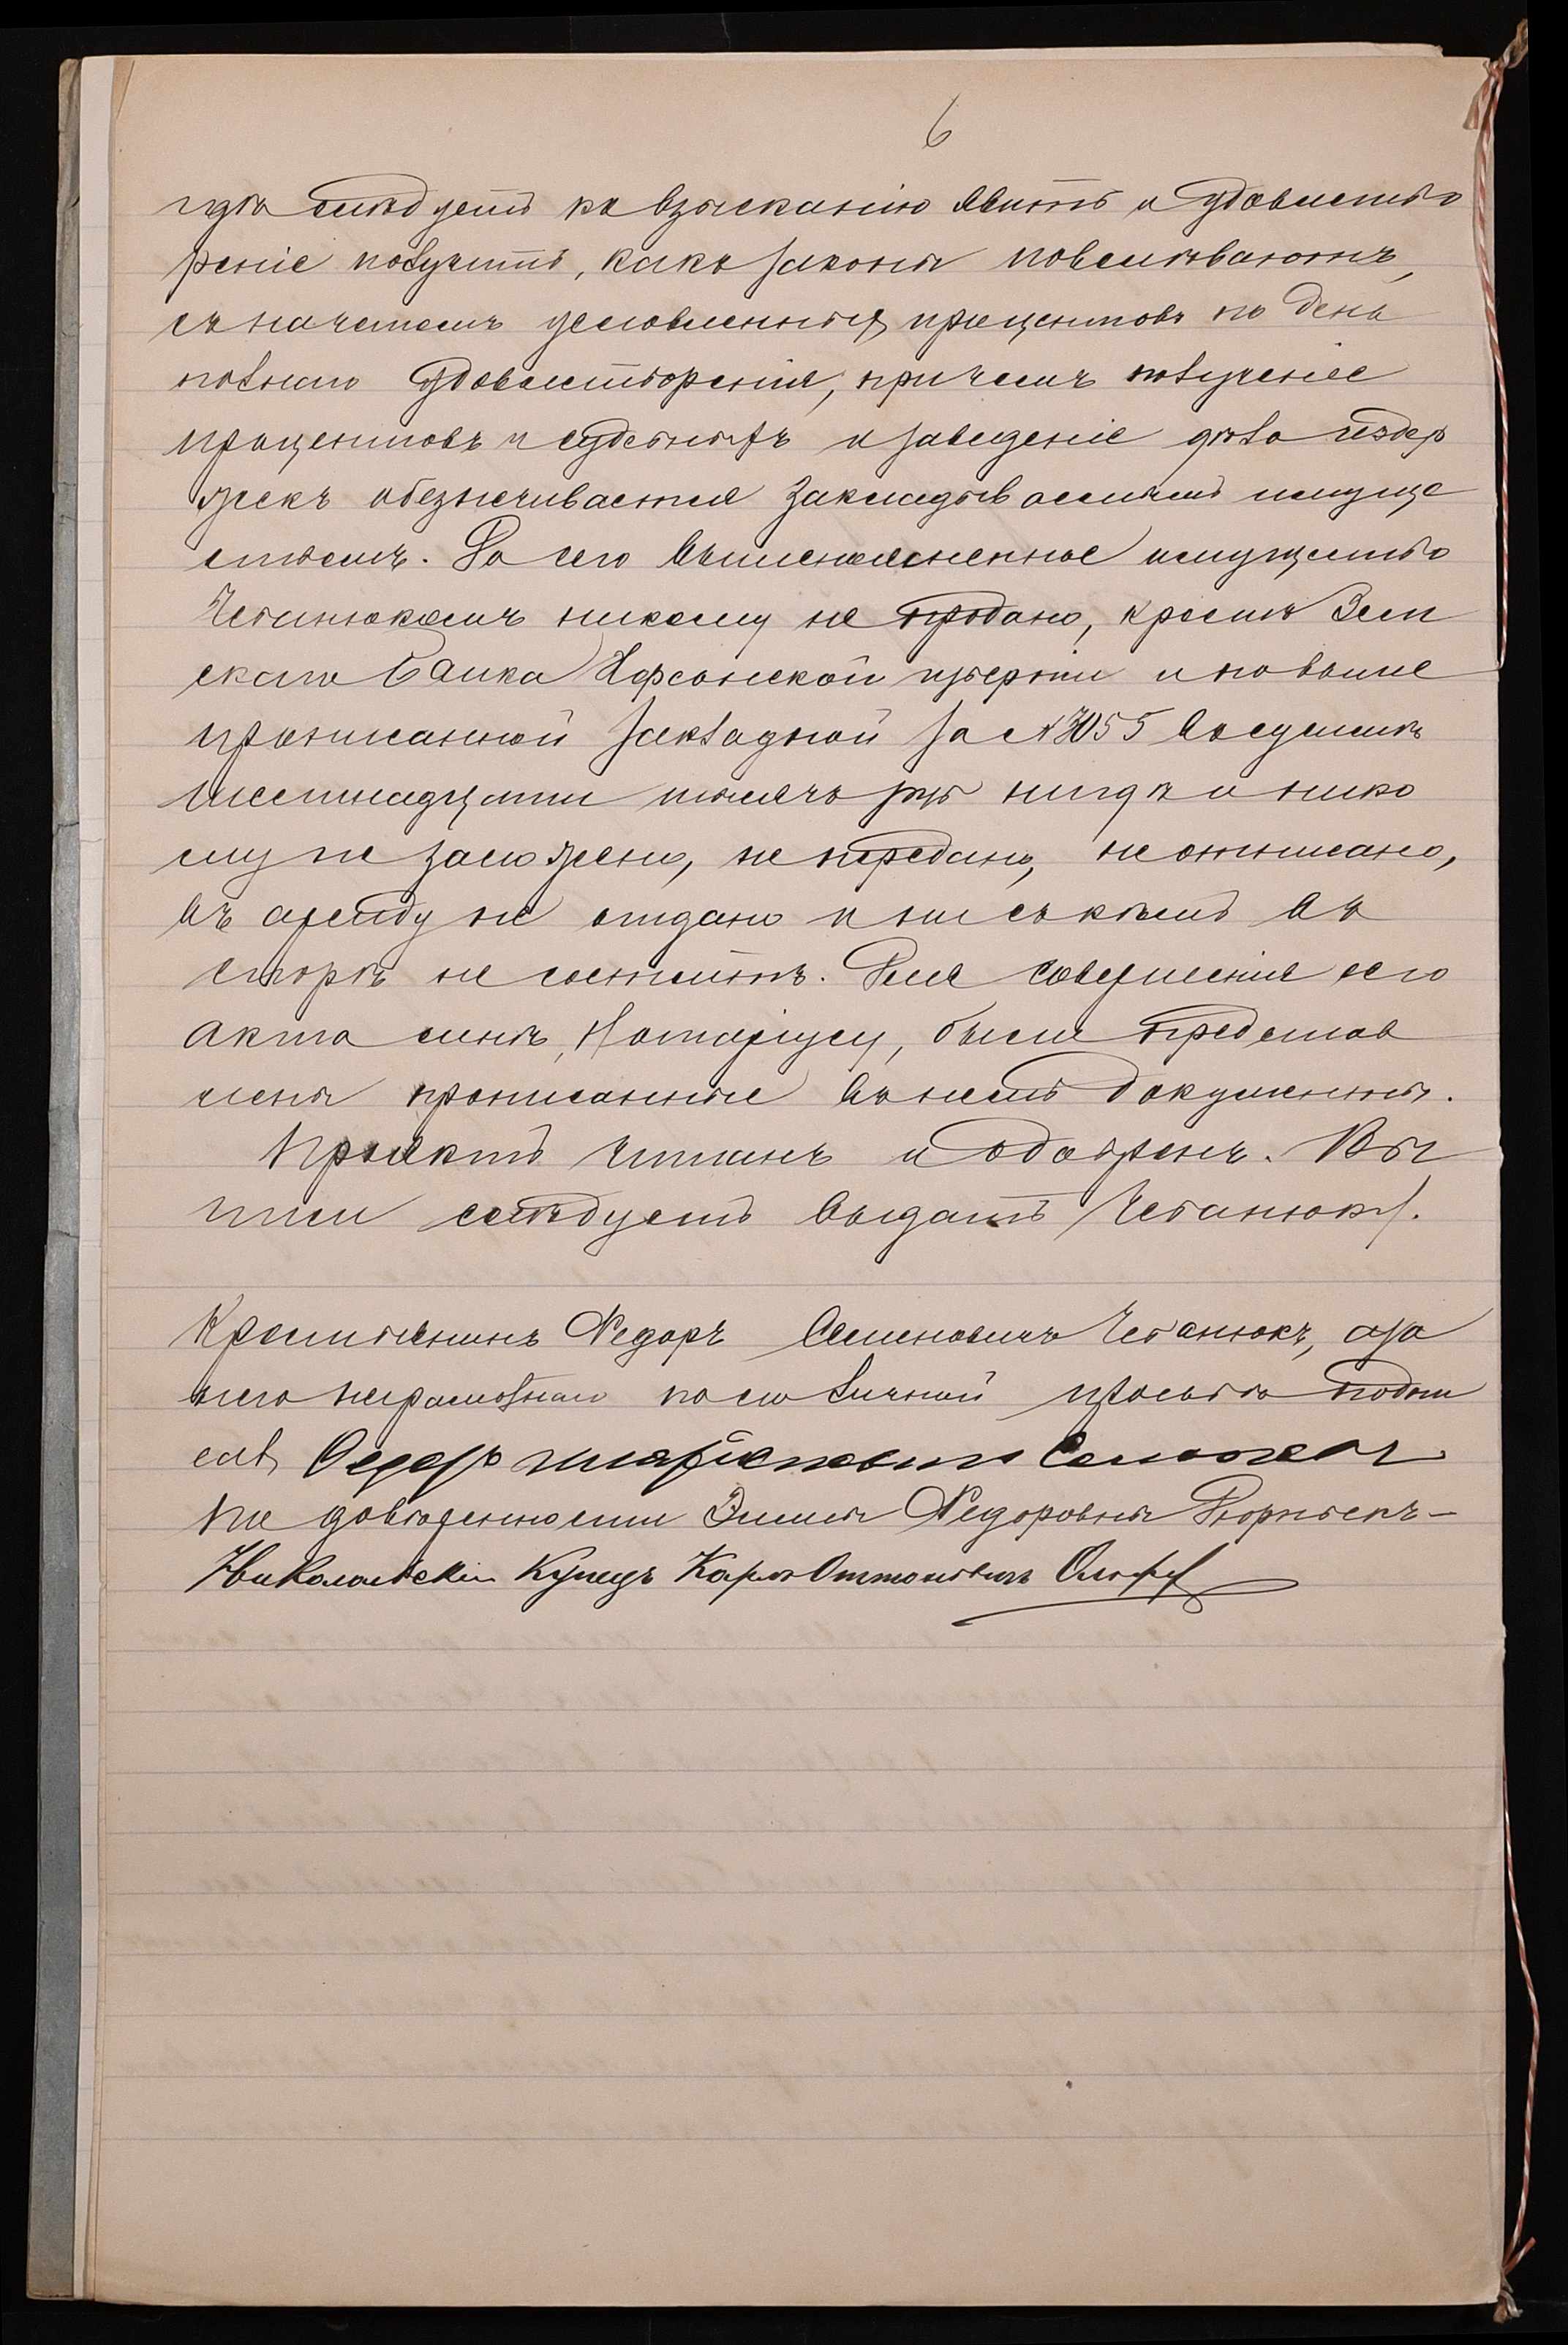 6
гдѣ слѣдуетъ ко взысканію явить и удовлетво
реніе получить, какъ законы повелѣваютъ,
съ начетомъ условленныхъ процентовъ по день
полнаго удовлетворенія, причемъ полученіе
процентовъ и судебныхъ и заведеніе дѣла издер
жекъ обезпечивается закладываемымъ имуще
ствомъ. До сего вышеполясненное имущество
Чебанюкомъ никому не продано, кромѣ Зем
скаго Банка Херсонской губерніи и по выше
прописанной закладной за №3055 въ суммѣ
шестнадцати тысячъ руб нигдѣ и нико
му не заложено, не передано, не отписано,
въ аренду не отдано и ни съ кѣмъ въ
спорѣ не состоитъ. Для совершенія сего
акта мнѣ, Нотаріусу, были представ
лены прописанные въ немъ документы.
Проектъ читанъ и одобренъ. Вы
пись слѣдуетъ выдать Чебанюку.
Крестьянинъ Ѳедоръ Семеновичъ Чебанюкъ, а за
него неграмотнаго по его личной просьбѣ подпи
салъ Ѳедоръ
По довѣренности Эммы Ѳедоровны
Николаевскій Купецъ Карлъ Оттоновичъ